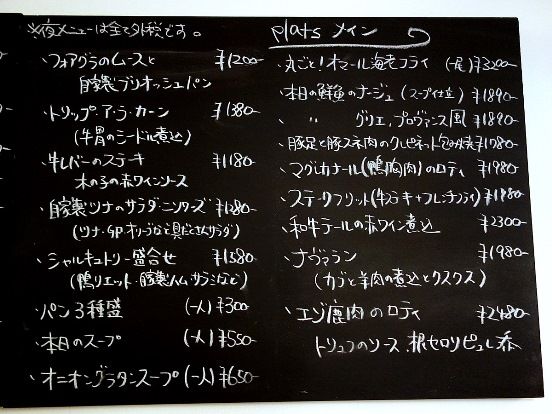 ※夜メニューは全て外税です。
・フォアグラのムースと ¥1200-
自家製ブリオッシュパン
・トリップ ア・ラ・カーン ¥1380-
(牛胃のシードル煮込)
・牛レバーのステーキ ¥1180-
木の子の赤ワインソース
・自家製ツナのサラダ・ニソワーズ ¥1280-
(ツナ・卵・オリーブなど具だくさんサラダ)
・シャルキュトリー盛合せ ¥1580-
(鴨リエット・豚製ハム・サラミなど)
・パン3種盛 (一人) ¥300
・本日のスープ (一人) ¥550-
・オニオングラタンスープ (一人) ¥650-
plats メイン
・丸ごと!オマール海老フライ (一尾) ¥3200-
・本日の鮮魚のナージュ (スープ仕立) ¥1890-
・ 〃 グリエ、プロヴァンス風 ¥1890-
・豚足と豚スネ肉のクレピネット包み焼 ¥1780-
・マグレカナール(鴨胸肉)のロティ ¥1980-
・ステークフリット(牛ステーキ+フレンチフライ) ¥1980-
・和牛テールの赤ワイン煮込 ¥2300-
・ナヴァラン ¥1980-
(カブと羊肉の煮込とクスクス)
・エゾ鹿肉のロティ ¥2480-
トリュフのソース、根セロリピュレ添